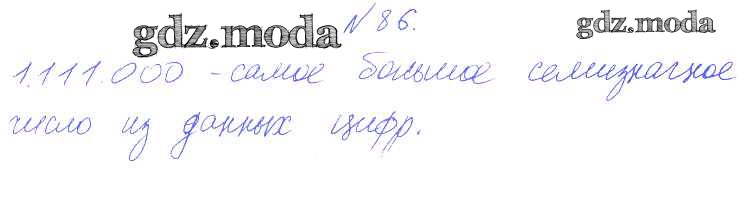 gdz.moda №86. gdz.moda
1.111.000 - самое большое семизначное
число из данных цифр.